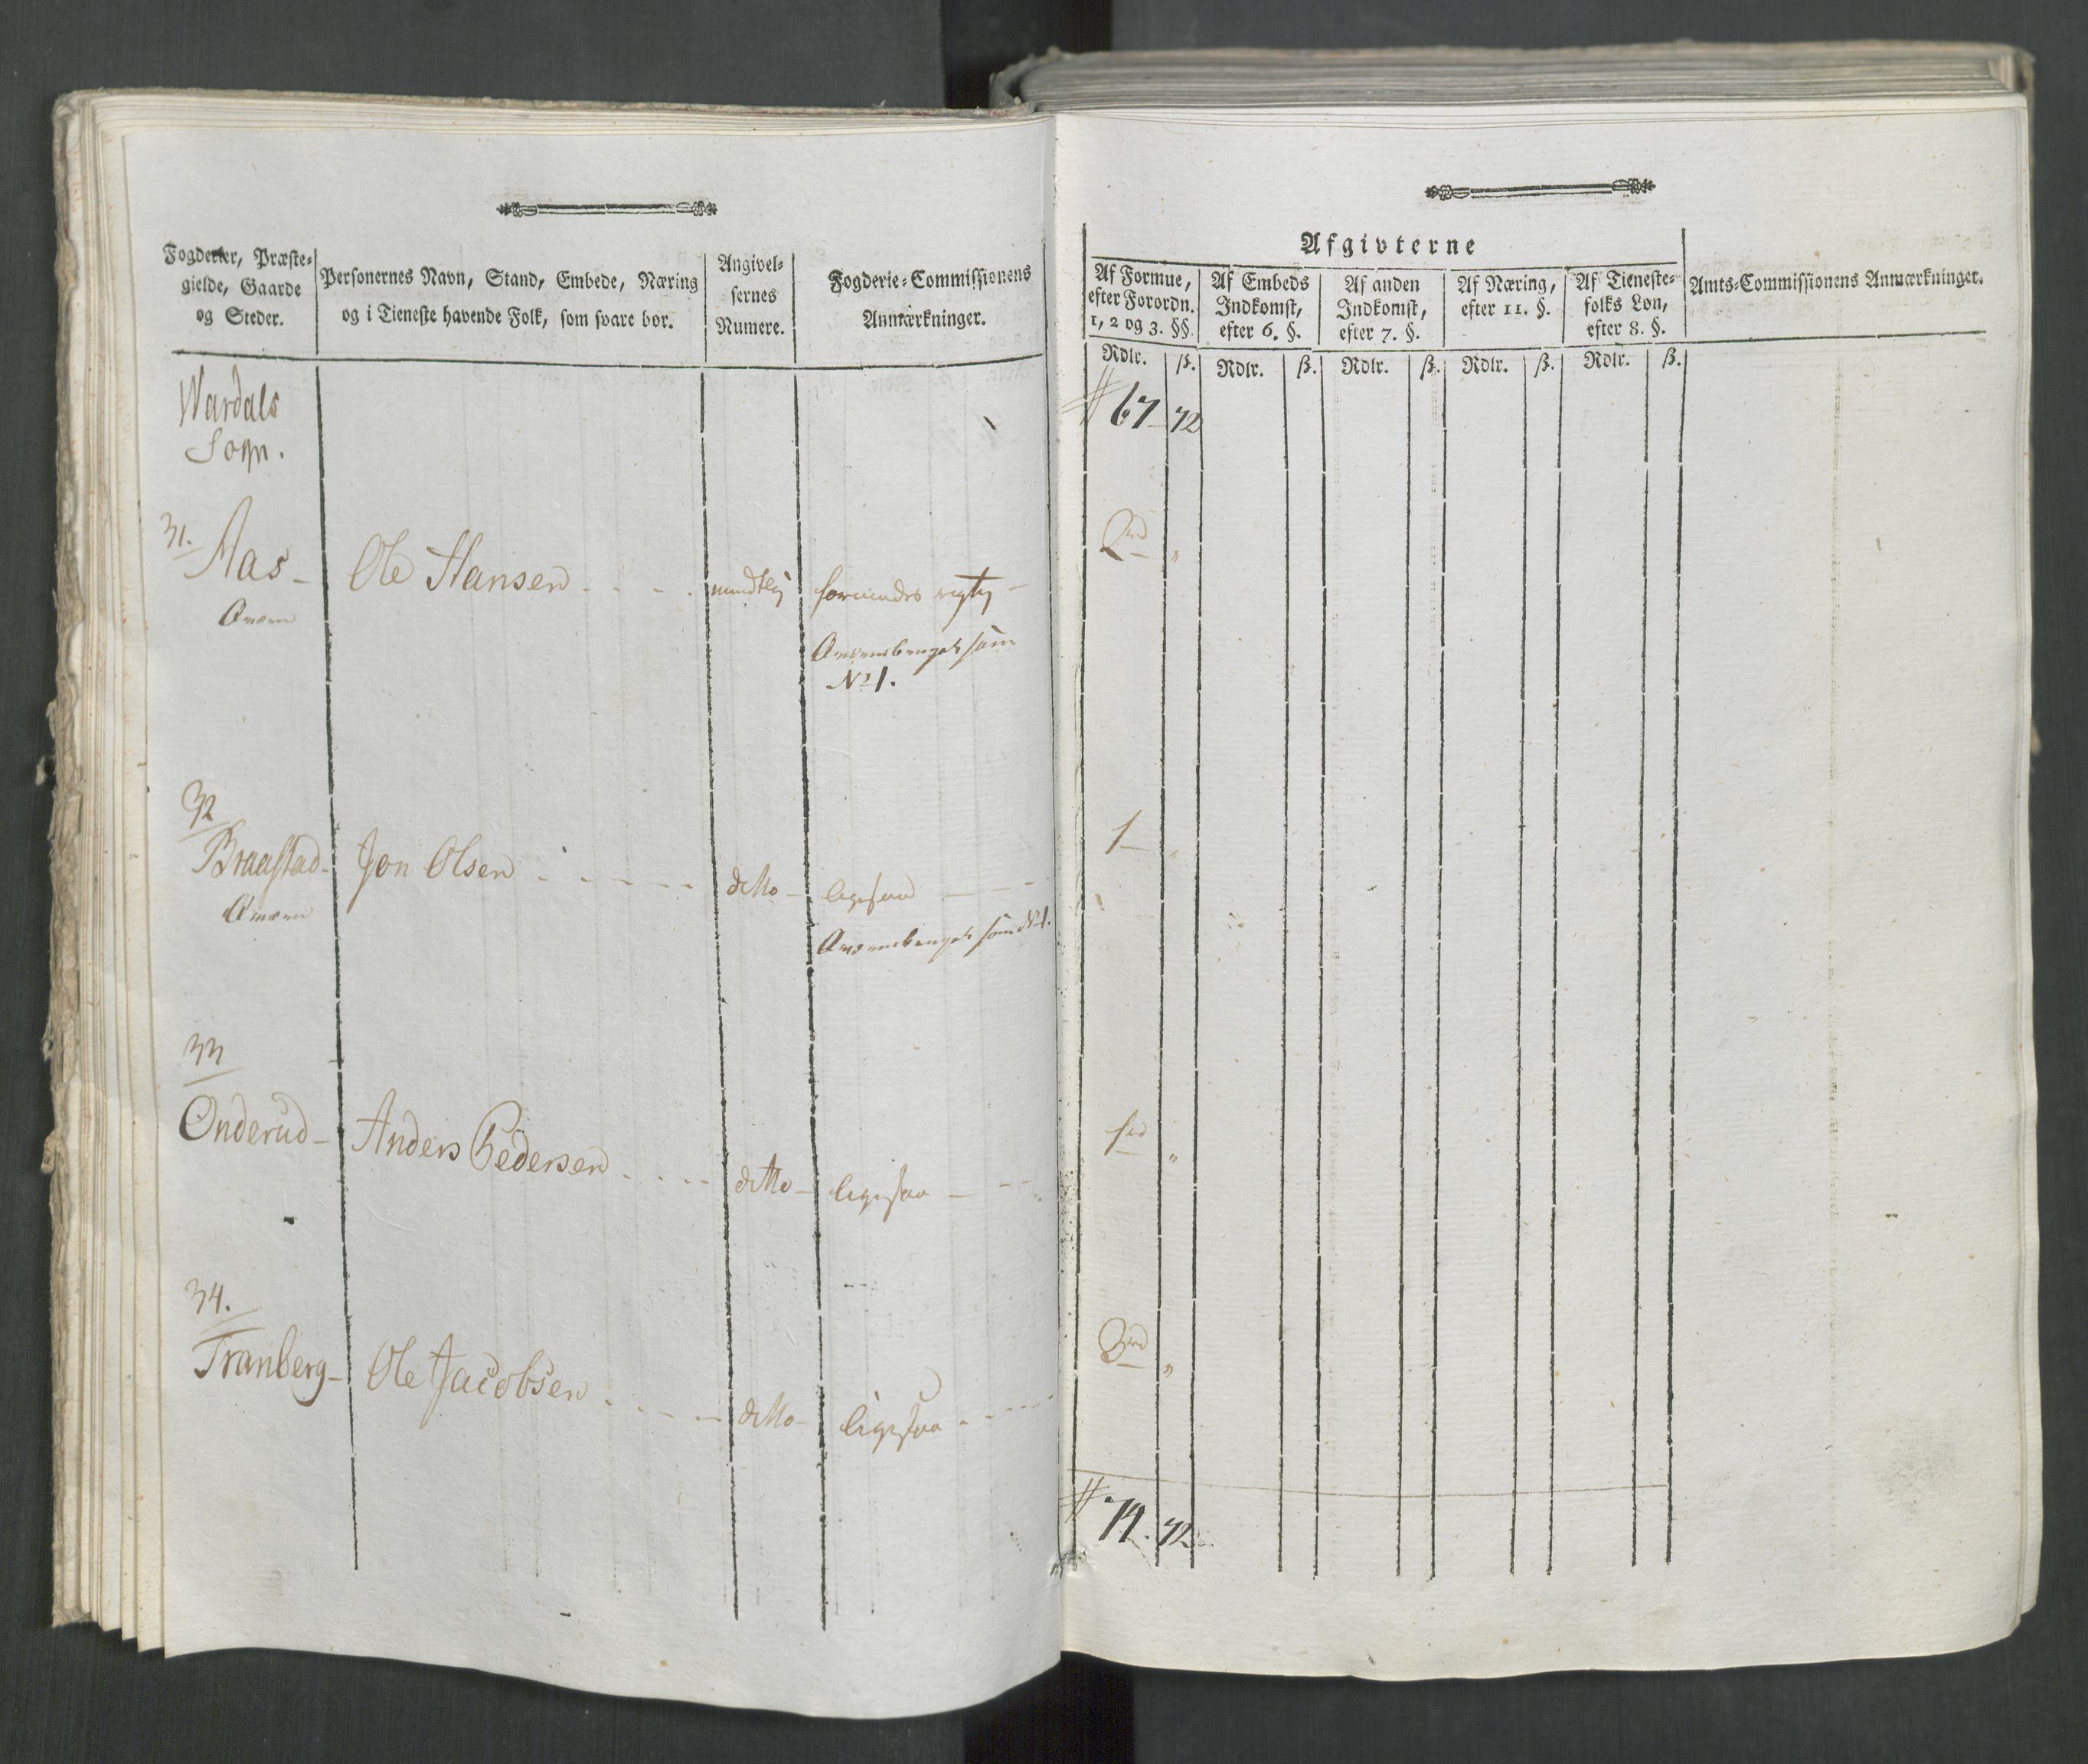 Fogderier, Præste-
gielde, Gaarde
og Steder.
Personernes Navn, Stand, Embede, Næring
og i Tieneste havende Folk, som svare bør.
Angivel-
sernes
Numere.
Fogderie-Commissionens
Anmærkninger.
Wardals
Sogn.
31.
Aas - Ole Hansen - - - - mundtlig formeendes rigtig -
som
No 1.
32
Braastad - Jon Olsen - - - - - ditto - ligesaa - - -
som No 1.
33
Onderud - Anders Pedersen - - - - ditto - ligesaa - - -
34.
Tranberg - Ole Jacobsen - - - - - ditto - ligesaa - - - -
Afgivterne
Af Formue,
efter Forordn.
1, 2 og 3. §§.
Af Embeds
Indkomst,
efter 6. §.
Af anden
Indkomst,
efter 7. §.
Af Næring,
efter 11. §.
Af Tieneste-
folks Løn,
efter 8. §.
Amts-Commissionens Anmærkninger.
Rdlr. ß. Rdlr. ß. Rdlr. ß. Rdlr. ß. Rdlr. ß.
67 - 72
2 rd "
1 - "
1 rd "
3 rd "
74. 72